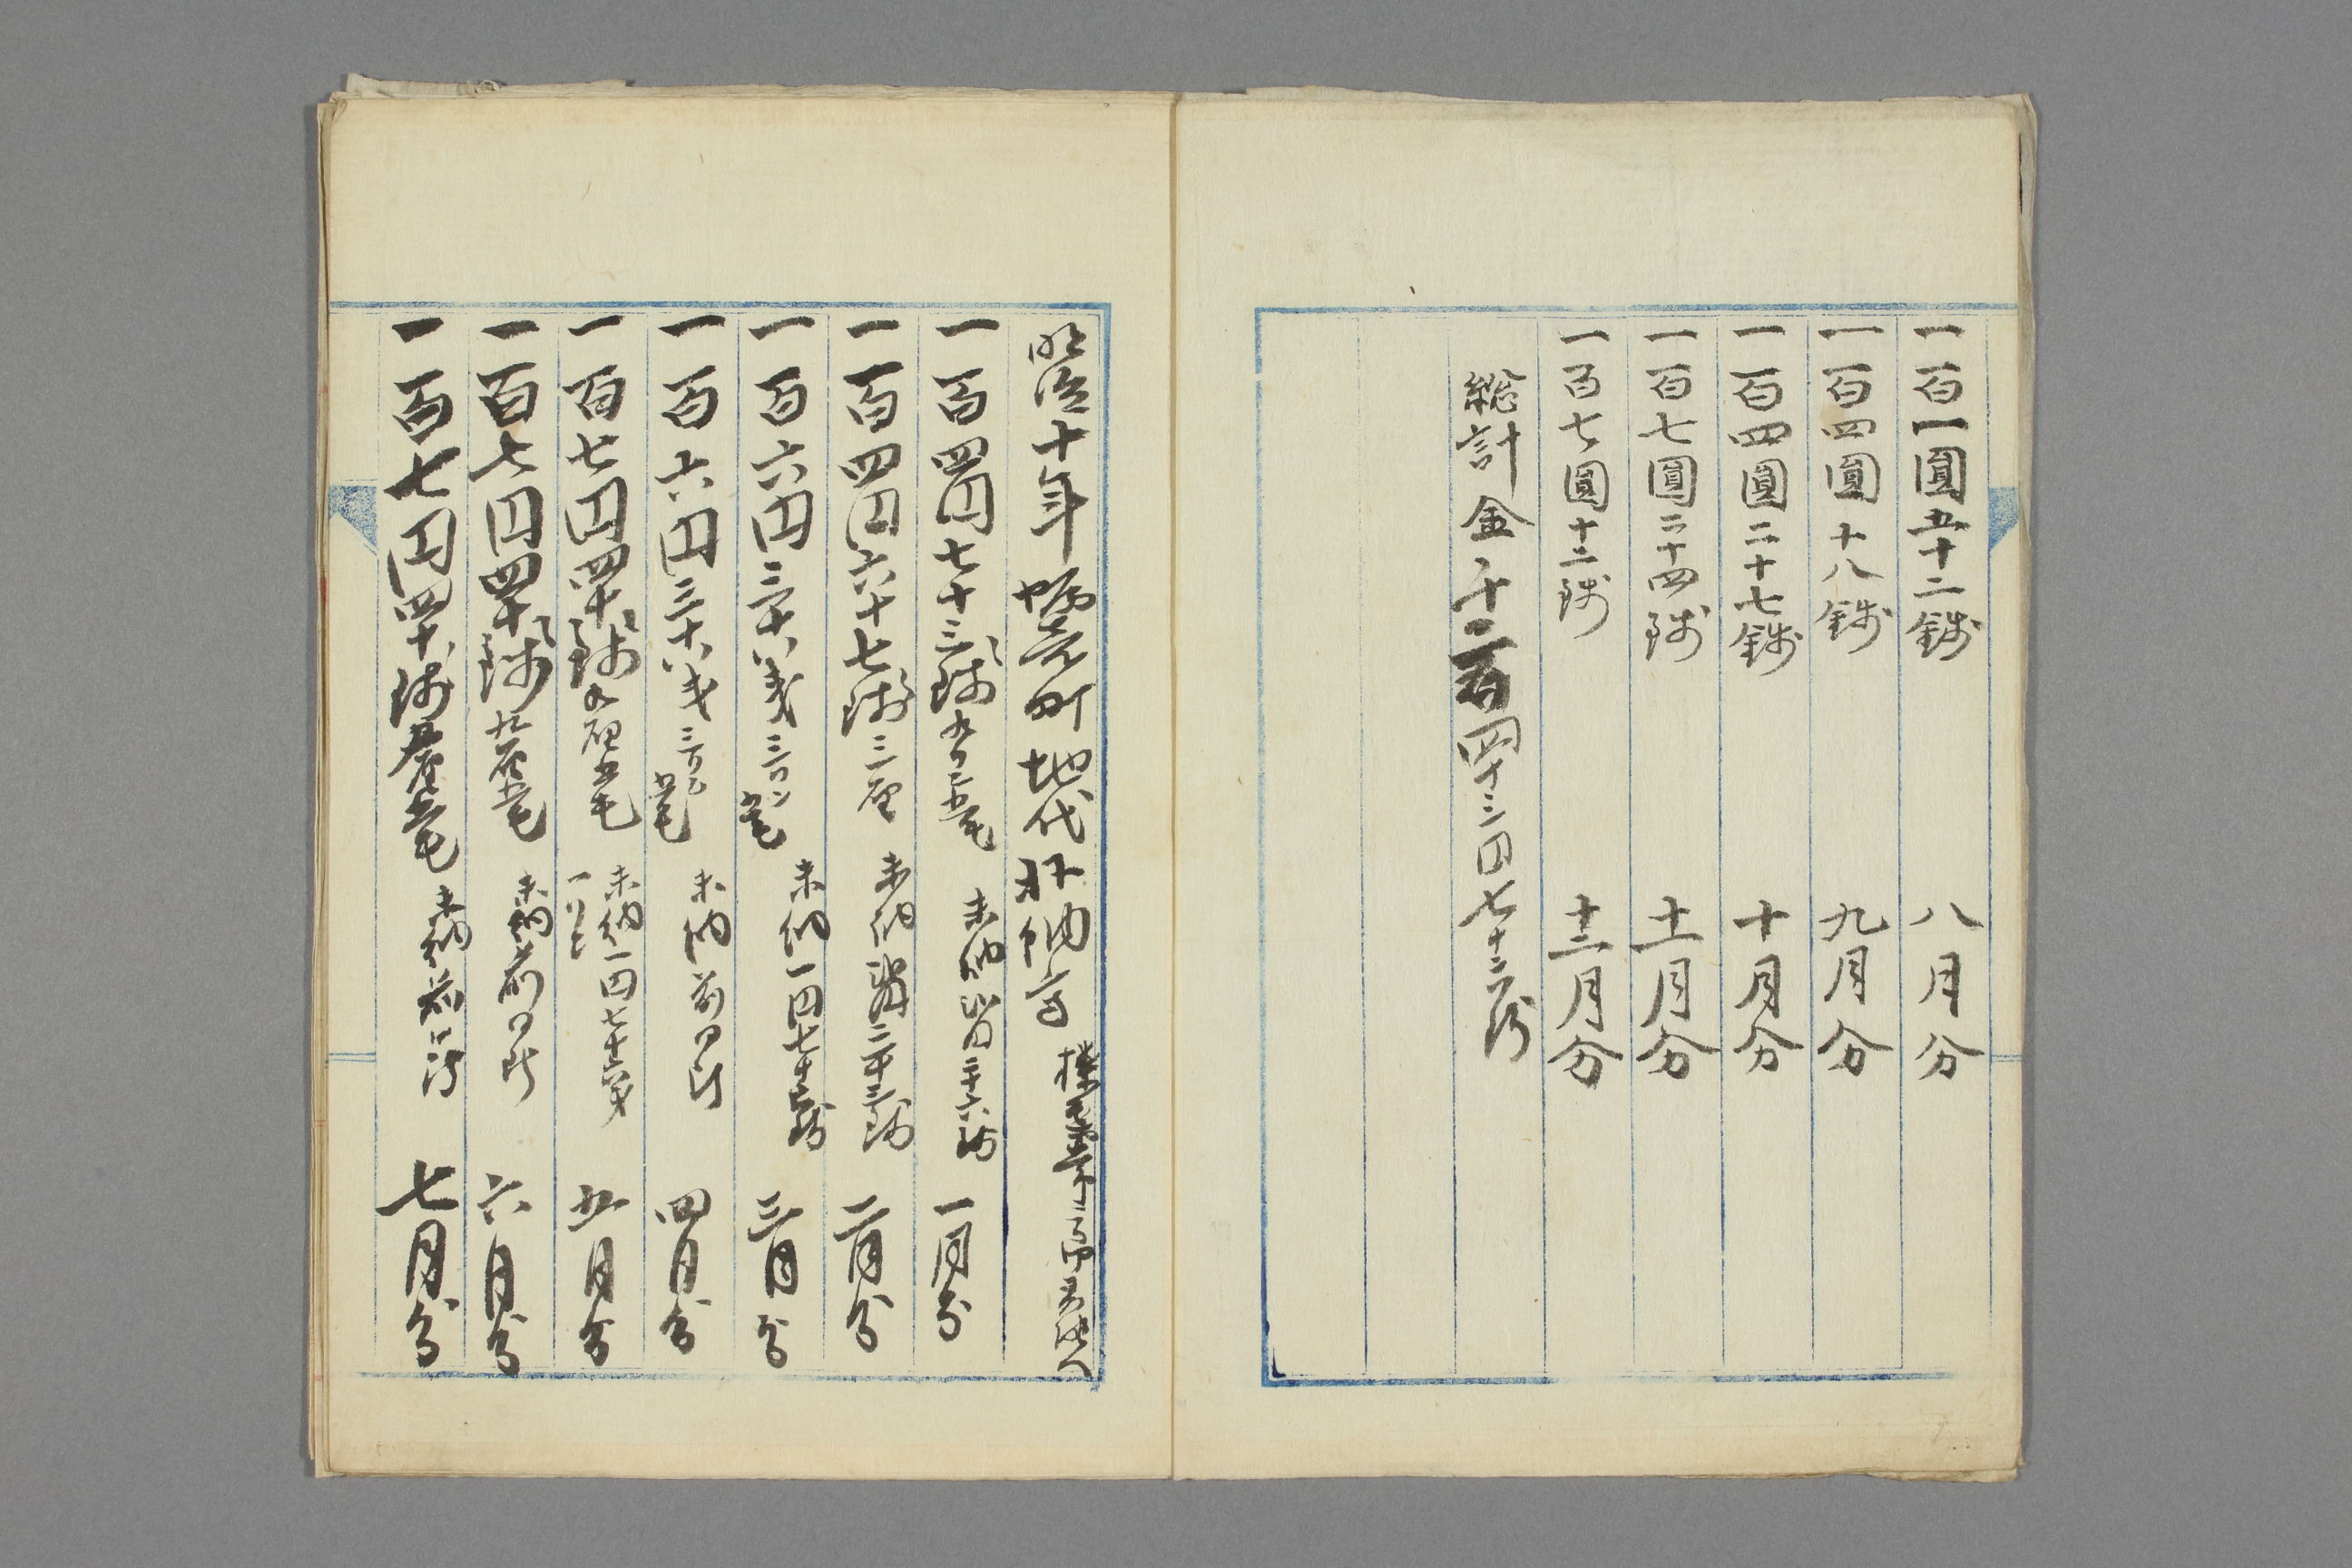 一百一圓五十二錢 八月分
一百四圓十八錢 九月分
一百四圓二十七錢 十月分
一百七圓二十四錢 十一月分
一百七圓十二錢 十二月分
総計金千二百四十三円七十二銭
明治十年蛎売町地代 納高
一百四円七十三銭 未納 円三十六銭 一月分
一百四円六十七銭三厘 未納 二十三銭 二月分
一百六円三十八銭三 毛 未納一円七十六銭 三月分
一百六円三十八銭三 毛 未納前同断 四月分
一百七円四十銭 厘五毛 未納一円七十六銭 五月分
一百七円四十銭九厘五毛 未納前同断 六月分
一百七円四十銭九厘五毛 未納前同断 七月分